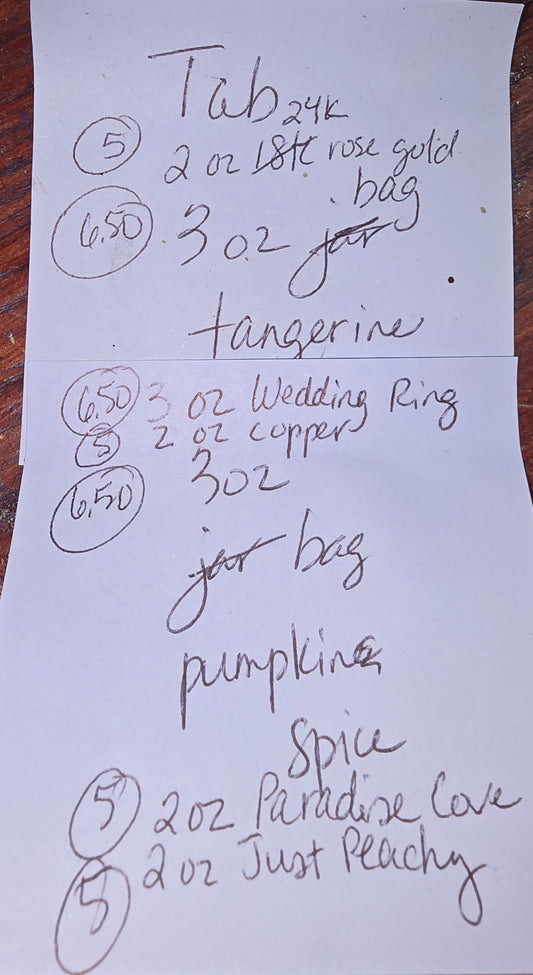 Tab
24K
5 2 oz 18K rose gold
6.50 3 oz jar bag
tangerine
6.50 3 oz Wedding Ring
5 2 oz copper
6.50 3oz
jar bag
pumpkin
Spice
5 2oz Paradise Cove
5 2oz Just Peachy